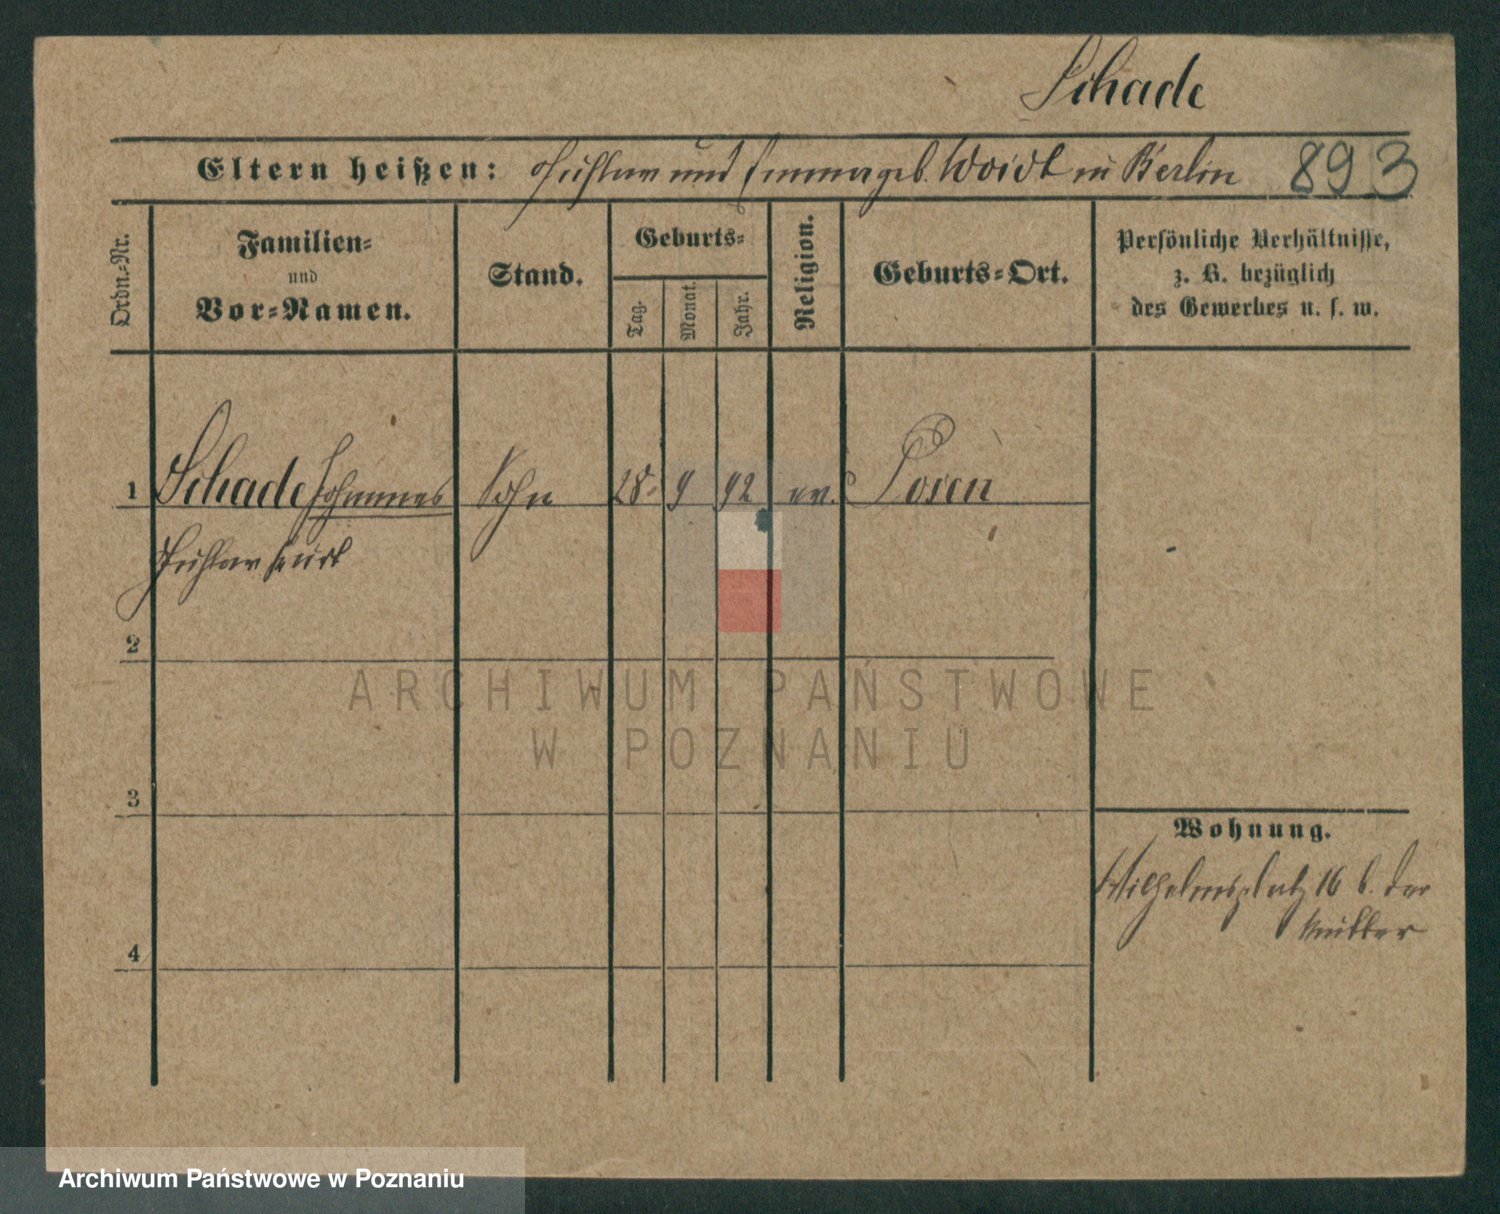 Schade
Eltern heißen: Gustav und Emma geb. Woidt in Berlin 893
Ordn.-Nr.
Familien-
und
Vor-Namen.
Stand.
Geburts-
Tag.
Monat.
Jahr.
Religion.
Geburts-Ort.
Persönliche Verhältnisse,
z. B. bezüglich
des Gewerbes u. s. w.
1 Schade Johannes Sohn 28 9 92 ev. Posen
Gustav Kurt
2
ARCHIWUM PAŃSTWOWE
W POZNANIU
3
Wohnung.
Wilhelmsplatz 16 b. der
Mutter
4
Archiwum Państwowe w Poznaniu